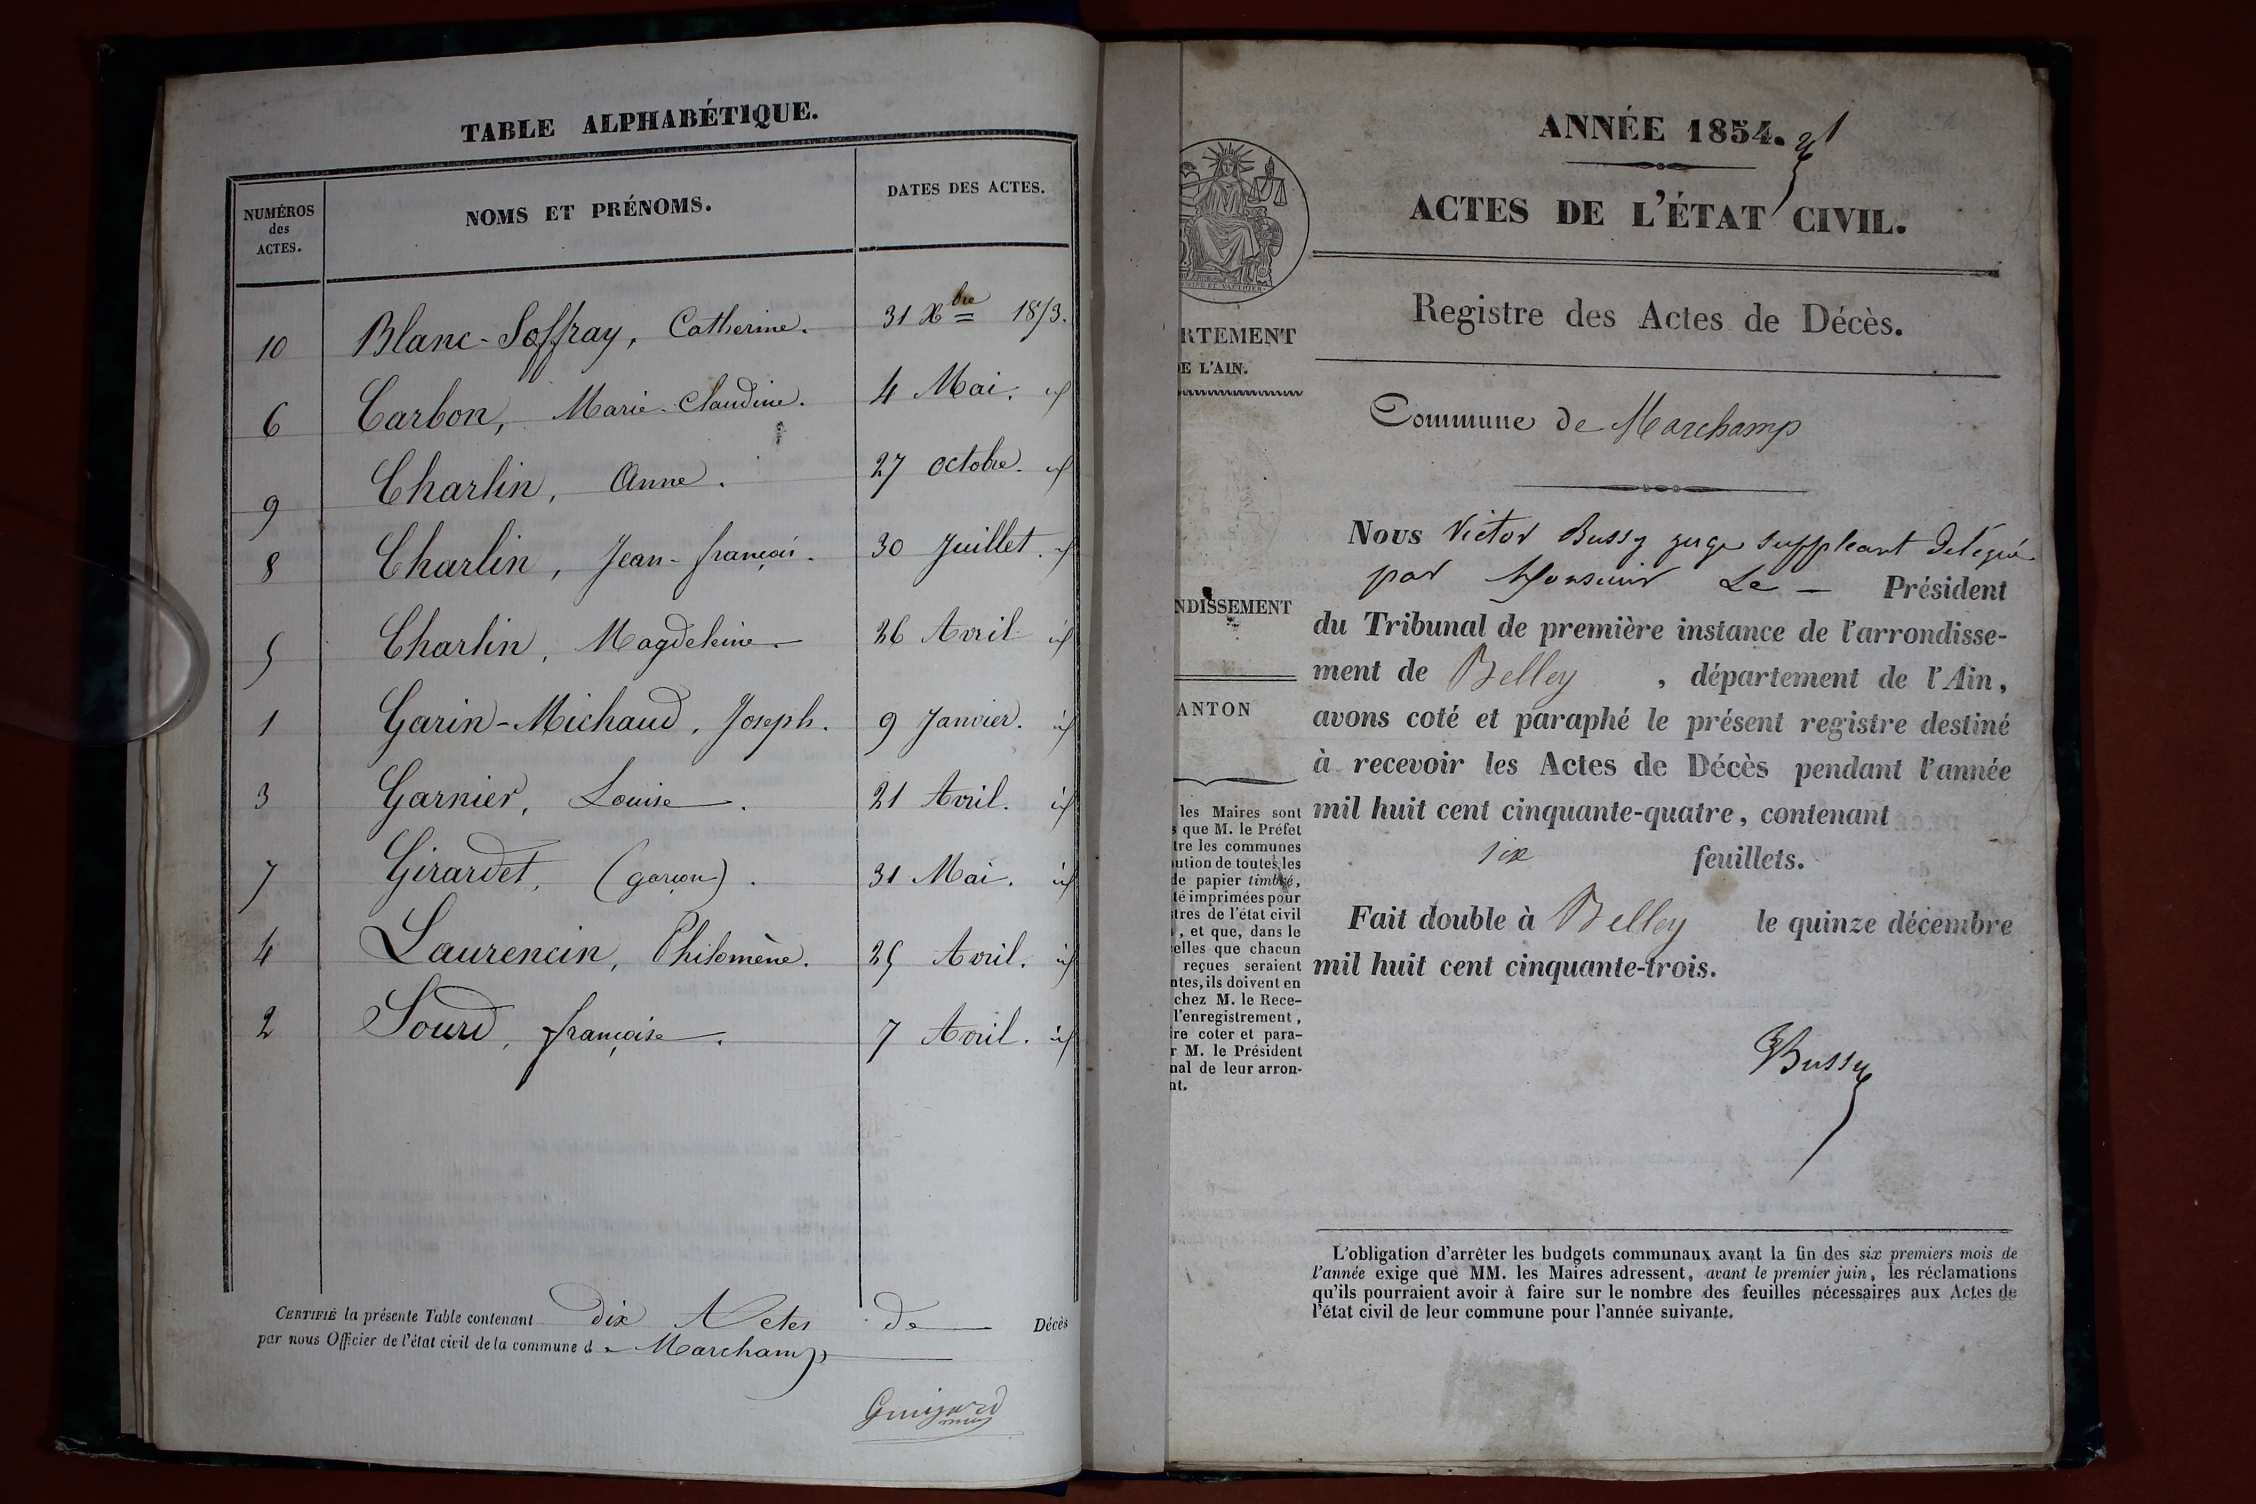 TABLE ALPHABÉTIQUE.
NUMÉROS des ACTES. NOMS ET PRÉNOMS. DATES DES ACTES.
10 Blanc-Soffray, Catherine. 31 Xbre 1853.
6 Carbon, Marie-Claudine. 4 Mai. id
9 Charlin, Anne. 27 octobre. id
8 Charlin, Jean-françois. 30 Juillet. id
5 Charlin, Magdeleine. 26 Avril id
1 Garin-Michaud, Joseph. 9 Janvier. id
3 Garnier, Louise. 21 Avril. id
7 Girardet, (garçon). 31 Mai. id
4 Laurencin, Philomène. 25 Avril. id
2 Sourd, françoise. 7 Avril. id
CERTIFIÉ la présente Table contenant dix Actes de Décès
par nous Officier de l'état civil de la commune de Marchamp
ANNÉE 1854.
ACTES DE L'ÉTAT CIVIL.
Registre des Actes de Décès.
RTEMENT
DE L'AIN.
Commune de Marchamp
Nous Victor Bussy juge suppleant delégué
par Monsieur Le — Président
NDISSEMENT
du Tribunal de première instance de l'arrondisse-
ment de Belley, département de l'Ain,
ANTON
avons coté et paraphé le présent registre destiné
à recevoir les Actes de Décès pendant l'année
mil huit cent cinquante-quatre, contenant
six feuillets.
Fait double à Belley le quinze décembre
mil huit cent cinquante-trois.
Bussy
les Maires sont
s que M. le Préfet
tre les communes
ution de toutes les
de papier timbré,
té imprimées pour
tres de l'état civil
, et que, dans le
elles que chacun
reçues seraient
ntes, ils doivent en
chez M. le Rece-
l'enregistrement,
ire coter et para-
r M. le Président
nal de leur arron-
nt.
L'obligation d'arrêter les budgets communaux avant la fin des six premiers mois de
l'année exige que MM. les Maires adressent, avant le premier juin, les réclamations
qu'ils pourraient avoir à faire sur le nombre des feuilles nécessaires aux Actes de
l'état civil de leur commune pour l'année suivante.